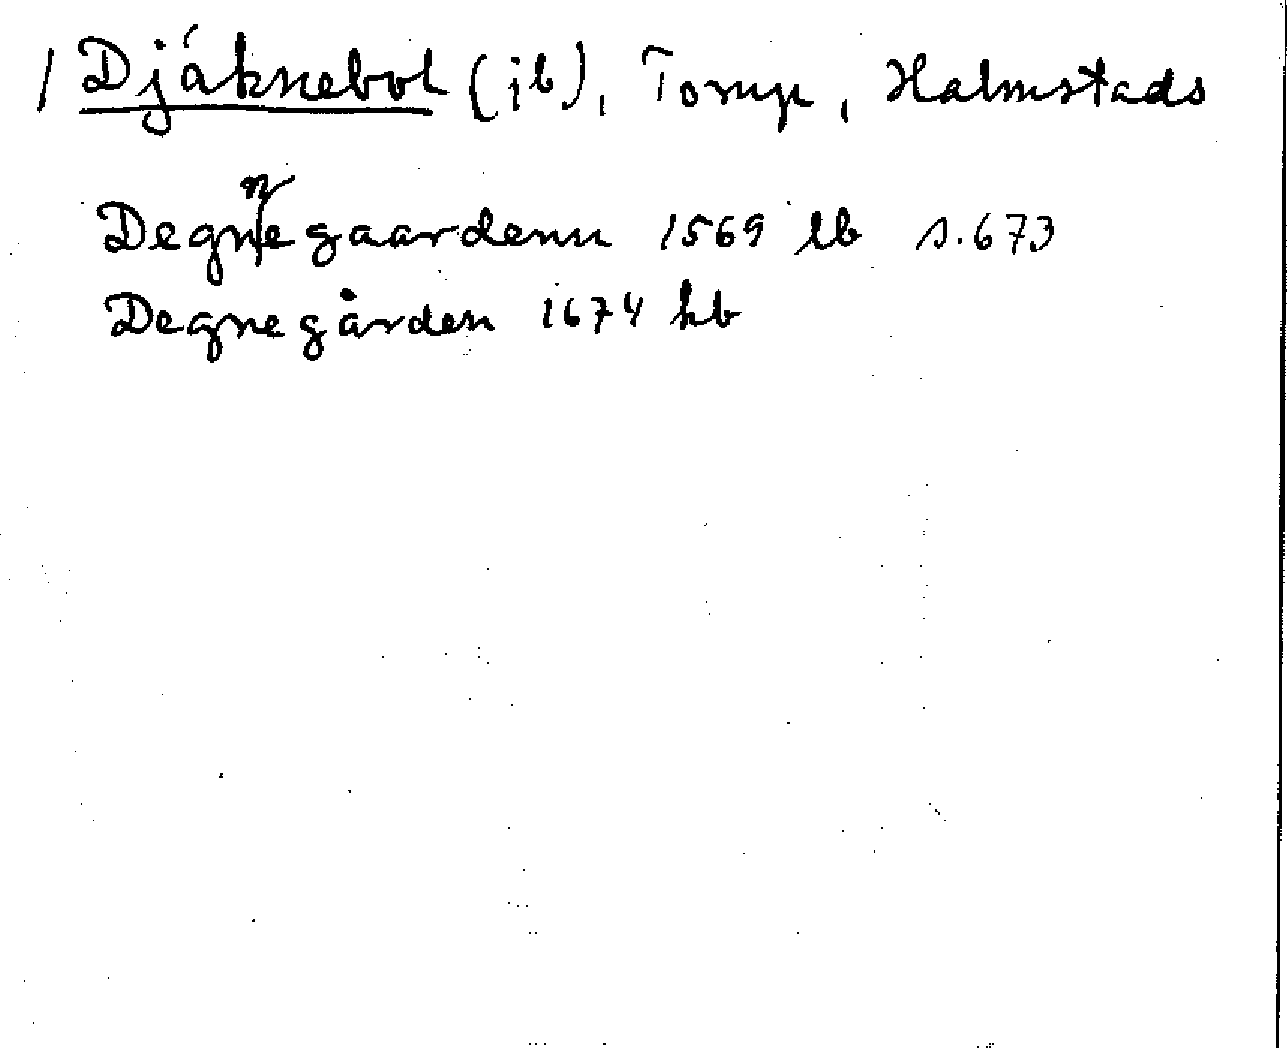 / Djäknebol (jb), Torup, Halmstads
Degnnegaardenn 1569 lb s.673
Degnegården 1674 hb